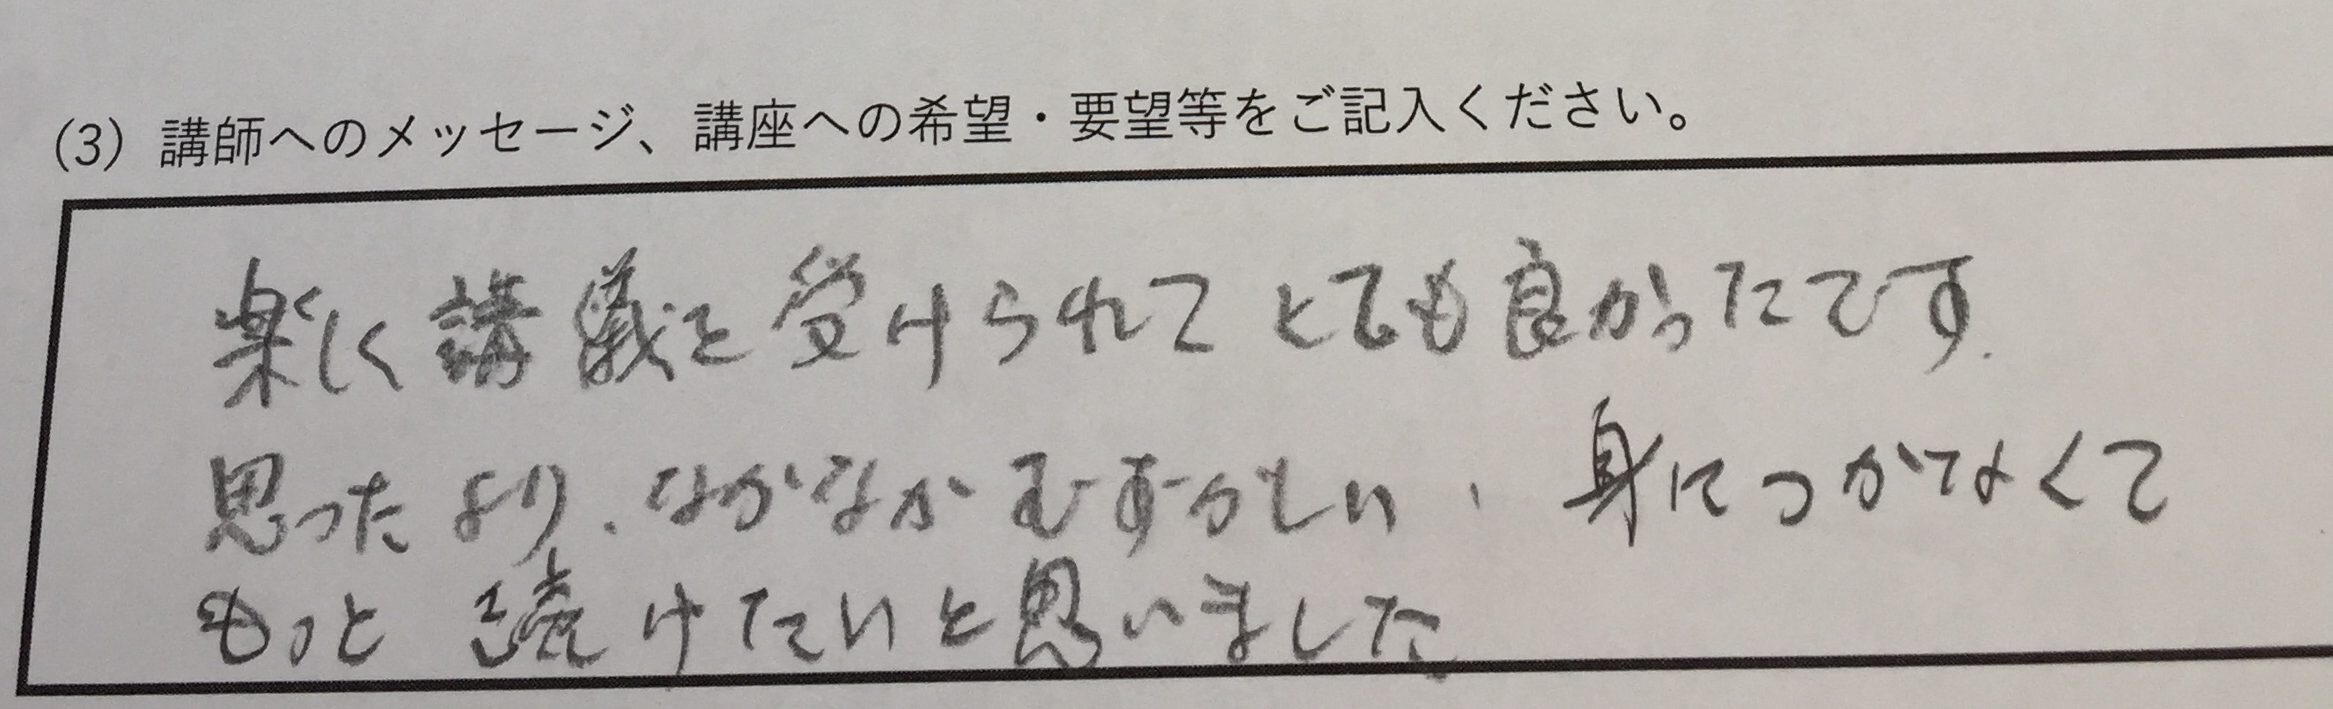 (3) 講師へのメッセージ、講座への希望・要望等をご記入ください。
楽しく講義を受けられてとても良かったです.
思ったより、なかなかむずかしい、身につかなくて
もっと続けたいと思いました